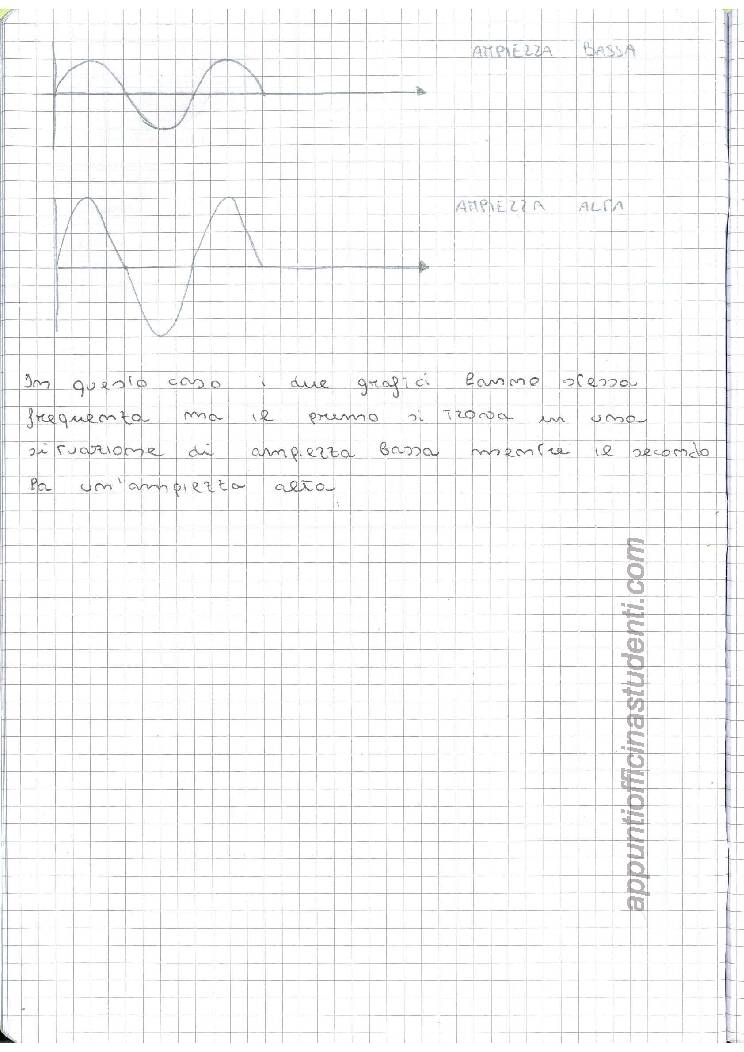 AMPIEZZA BASSA
AMPIEZZA ALTA
In questo caso i due grafici hanno stessa
frequenza ma il primo si trova in una
situazione di ampiezza bassa mentre il secondo
ha un'ampiezza alta
appuntiofficinastudenti.com